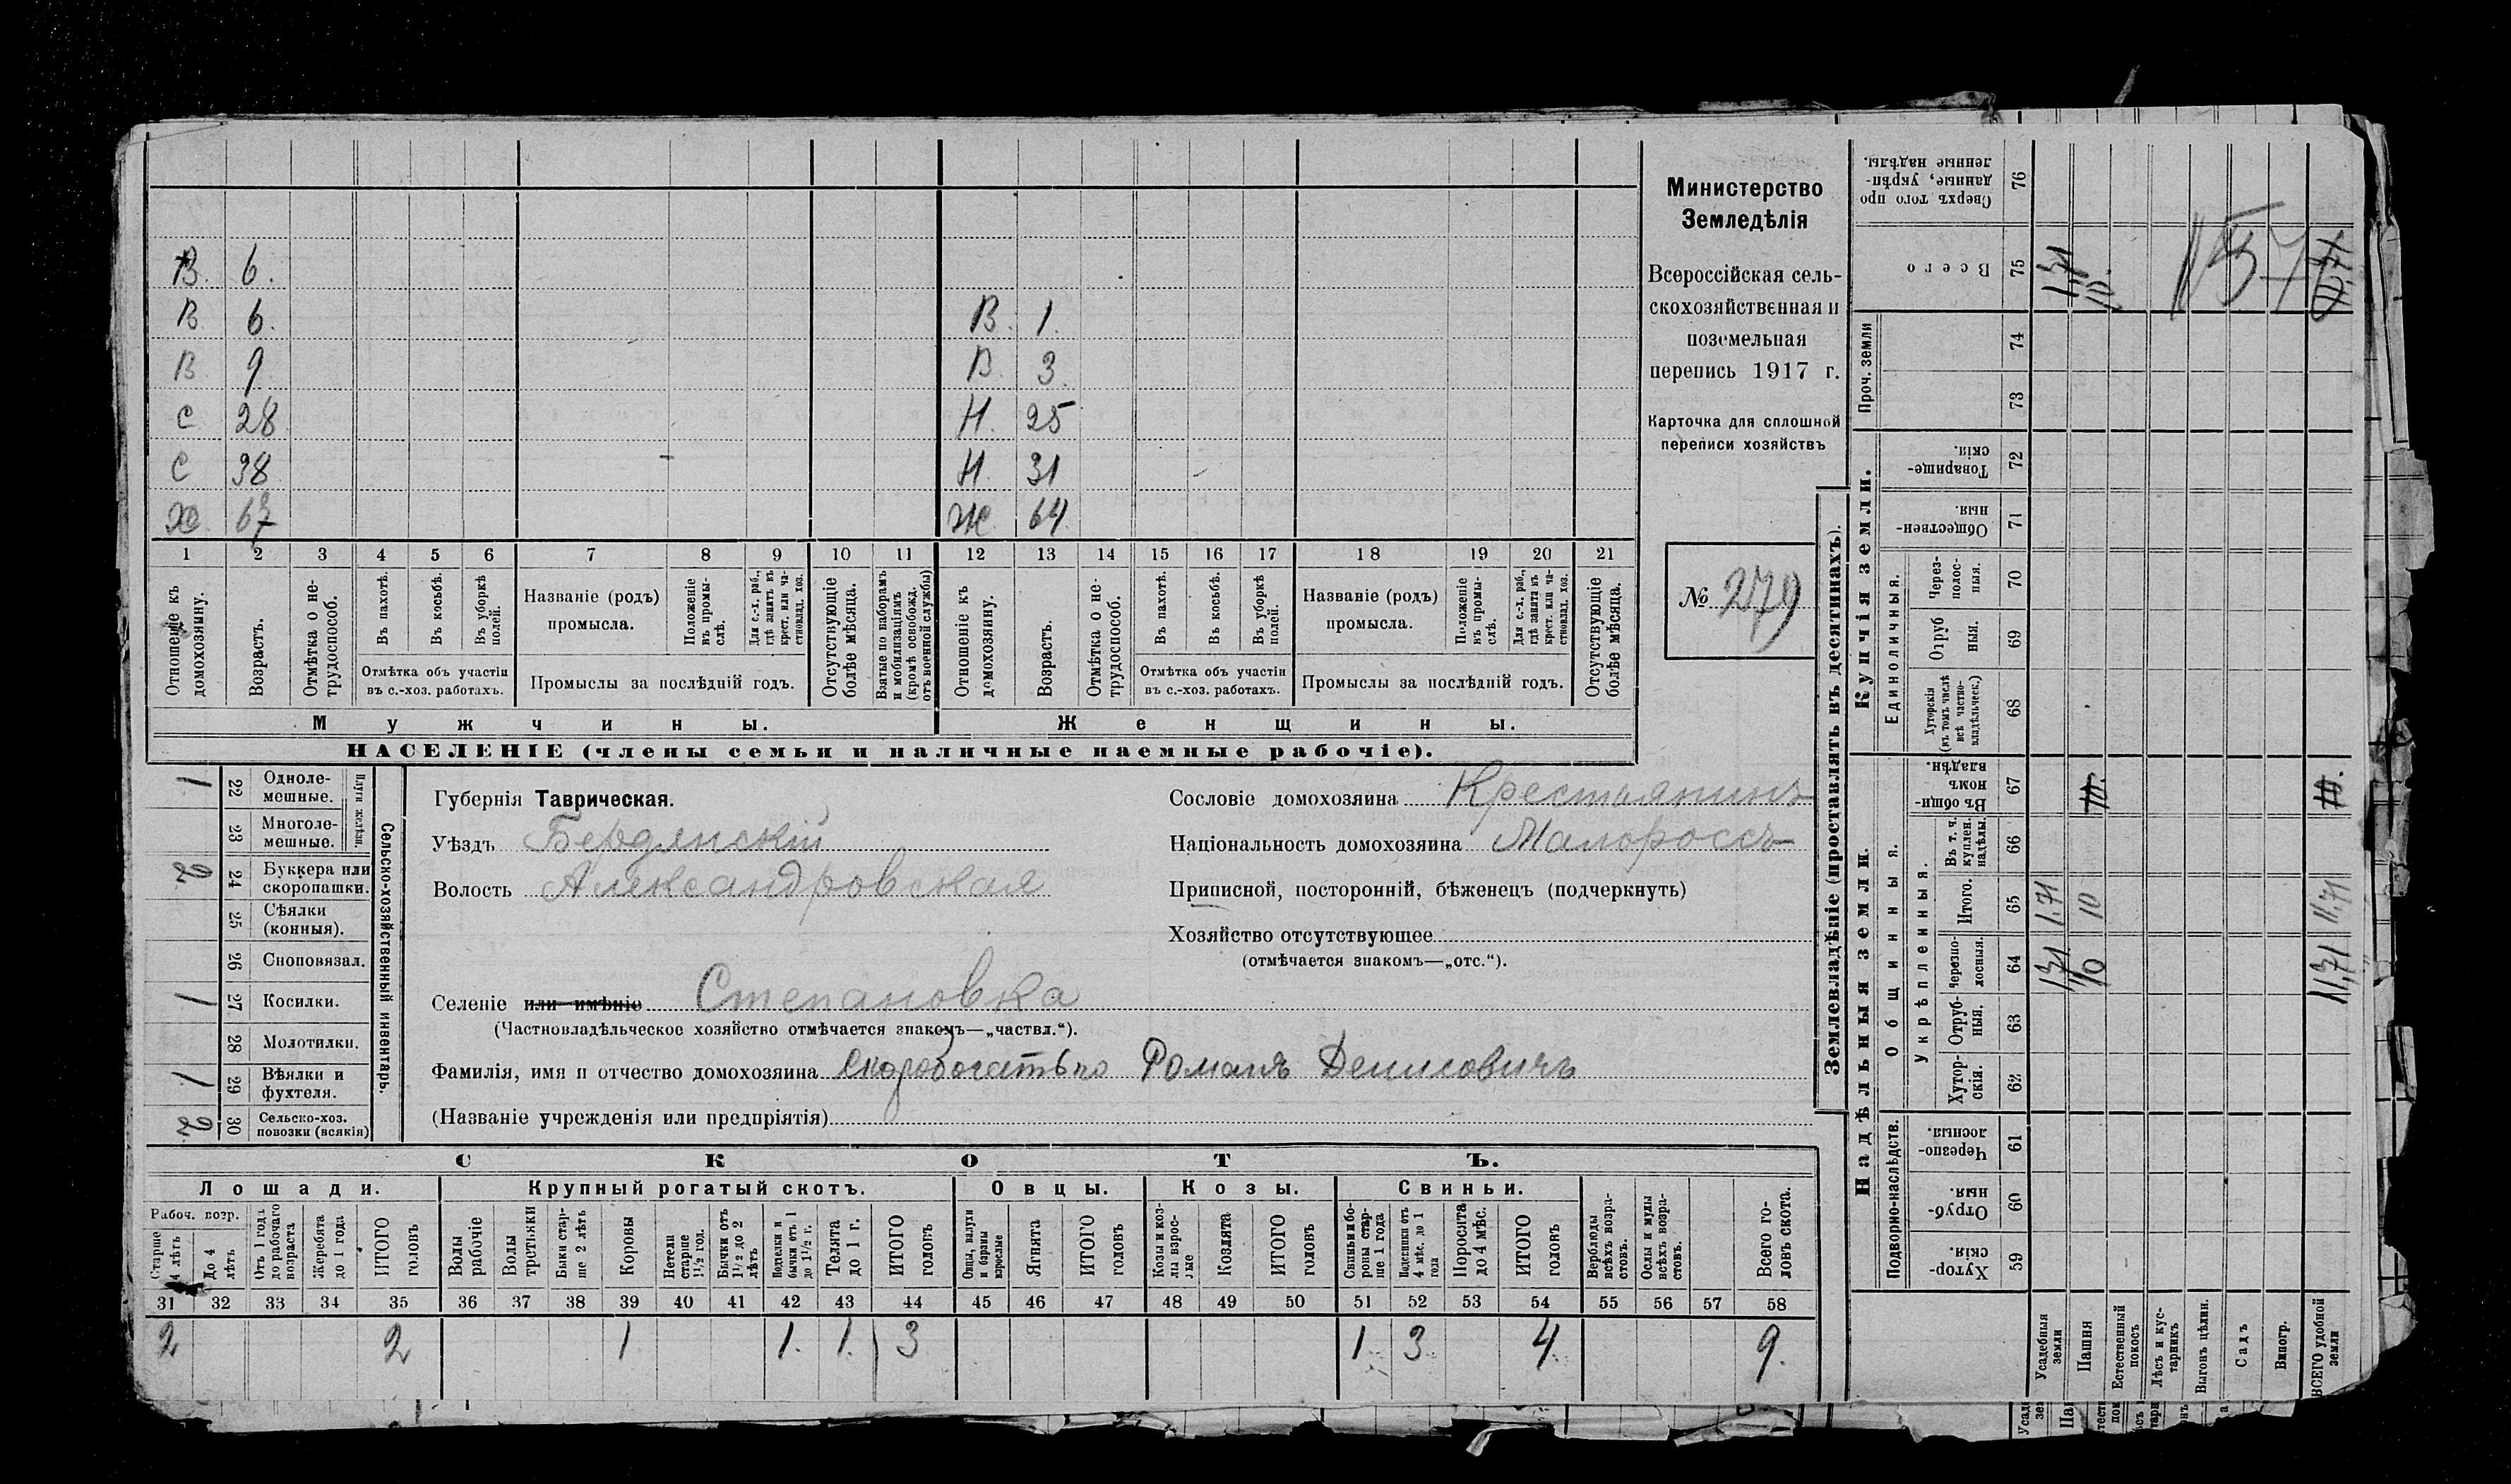 В. 6.
В 6. В. 1.
В 9 В 3
С 28 Н. 25
С 38 Н. 31
Хо 67 Ж 64
1 2 3 4 5 6 7 8 9 10 11 12 13 14 15 16 17 18 19 20 21
Отношеніе къ домохозяину.
Возрастъ.
Отмѣтка о нетрудоспособ.
Въ пахотѣ.
Въ косьбѣ.
Въ уборкѣ полей.
Отмѣтка объ участіи
въ с.-хоз. работахъ.
Названіе (родъ)
промысла.
Положеніе въ промыслѣ.
Для с.-х. раб., гдѣ занятъ въ крест. или частновлад. хоз.
Промыслы за послѣдній годъ.
Отсутствующіе болѣе мѣсяца.
Взятые по наборамъ и мобилизаціямъ (кромѣ освобожд. отъ военной службы)
Отношеніе къ домохозяину.
Возрастъ.
Отмѣтка о нетрудоспособ.
Въ пахотѣ.
Въ косьбѣ.
Въ уборкѣ полей.
Отмѣтка объ участіи
въ с.-хоз. работахъ.
Названіе (родъ)
промысла.
Положеніе въ промыслѣ.
Для с.-х. раб., гдѣ занята въ крест. или частновлад. хоз.
Промыслы за послѣдній годъ.
Отсутствующіе болѣе мѣсяца.
Мужчины. Женщины.
НАСЕЛЕНІЕ (члены семьи и наличные наемные рабочіе).
Министерство
Земледѣлія
Всероссійская сель-
скохозяйственная и
поземельная
перепись 1917 г.
Карточка для сплошной
переписи хозяйствъ
№ 279
Сельско-хозяйственный инвентарь.
Плуги желѣзн.
1 22 Одноле-
мешные.
23 Многоле-
мешные.
2 24 Буккера или
скоропашки.
25 Сѣялки
(конныя).
26 Сноповязал.
1 27 Косилки.
28 Молотилки.
1 29 Вѣялки и
фухтеля.
2 30 Сельско-хоз.
повозки (всякія)
Губернія Таврическая.
Уѣздъ Бердянскій
Волость Александровская
Сословіе домохозяина Крестьянинъ
Національность домохозяина Малороссъ
Приписной, посторонній, бѣженецъ (подчеркнуть)
Хозяйство отсутствующее
(отмѣчается знакомъ—„отс.“).
Селеніе или имѣніе Степановка
(Частновладѣльческое хозяйство отмѣчается знакомъ—„частвл.“).
Фамилія, имя и отчество домохозяина Скоробогатько Романъ Денисовичъ
(Названіе учрежденія или предпріятія)
СКОТЪ.
Лошади. Крупный рогатый скотъ. Овцы. Козы. Свиньи.
Рабоч. возр.
Старше 4 лѣтъ
До 4 лѣтъ
Отъ 1 года до рабочаго возраста
Жеребята до 1 года
ИТОГО головъ
Волы рабочіе
Волы третьяки
Быки старше 2 лѣтъ
Коровы
Нетели старше 1½ год.
Бычки отъ 1½ до 2 лѣтъ
Подтелки и бычки отъ 1 до 1½ г.
Телята до 1 г.
ИТОГО головъ
Овцы, валухи и бараны взрослые
Ягнята
ИТОГО головъ
Козы и козлы взрослые
Козлята
ИТОГО головъ
Свиньи и боровы старше 1 года
Подсвинки отъ 4 мѣс. до 1 года
Поросята до 4 мѣс.
ИТОГО головъ
Верблюды всѣхъ возрастовъ.
Ослы и мулы всѣхъ возрастовъ.
Всего головъ скота.
31 32 33 34 35 36 37 38 39 40 41 42 43 44 45 46 47 48 49 50 51 52 53 54 55 56 57 58
2 2 1 1. 1. 3 1. 3 4. 9.
Землевладѣніе (проставлять въ десятинахъ).
Надѣльныя земли. Купчія земли. Проч. земли
Подворно-наслѣдств.
Общинныя.
Укрѣпленныя.
Единоличныя.
59 Хуторскія
60 Отрубныя.
61 Черезполосныя.
62 Хуторскія.
63 Отрубныя.
64 Черезполосныя.
65 Итого.
66 Въ т. ч. куплен. надѣлы.
67 Въ общинномъ владѣн.
68 Хуторскія (въ томъ числѣ всѣ частновладѣльческ.)
69 Отрубныя.
70 Черезполосныя.
71 Общественныя.
72 Товарищескія.
73
74
75 Всего
76 Сверхъ того проданные, укрѣпленные надѣлы.
Усадебныя земли 1,71
Пашня 10 10.
Естественный покосъ
Лѣсъ и кустарникъ
Выгонъ цѣлин.
Садъ
Виногр.
ВСЕГО удобной земли 11,71 11,71 11,71